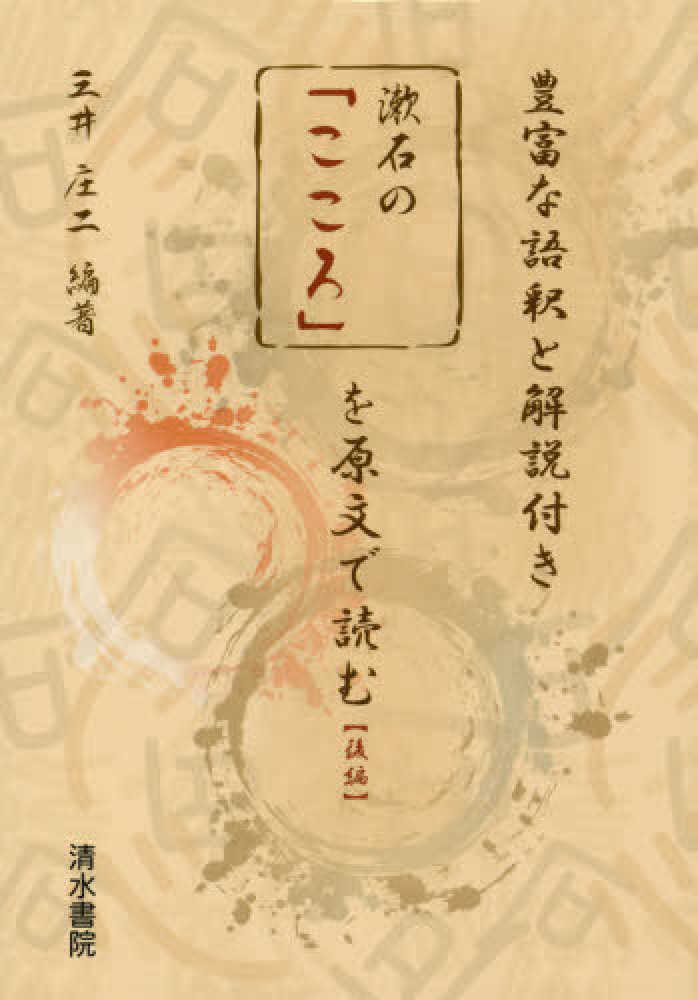 豊富な語釈と解説付き
漱石の
「こころ」
を原文で読む【後編】
三井 庄二 編著
清水書院